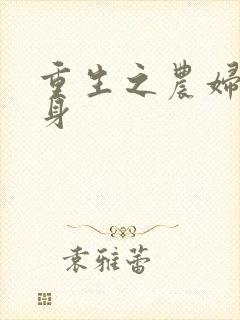 重生之農婦
身
袁雅蕾